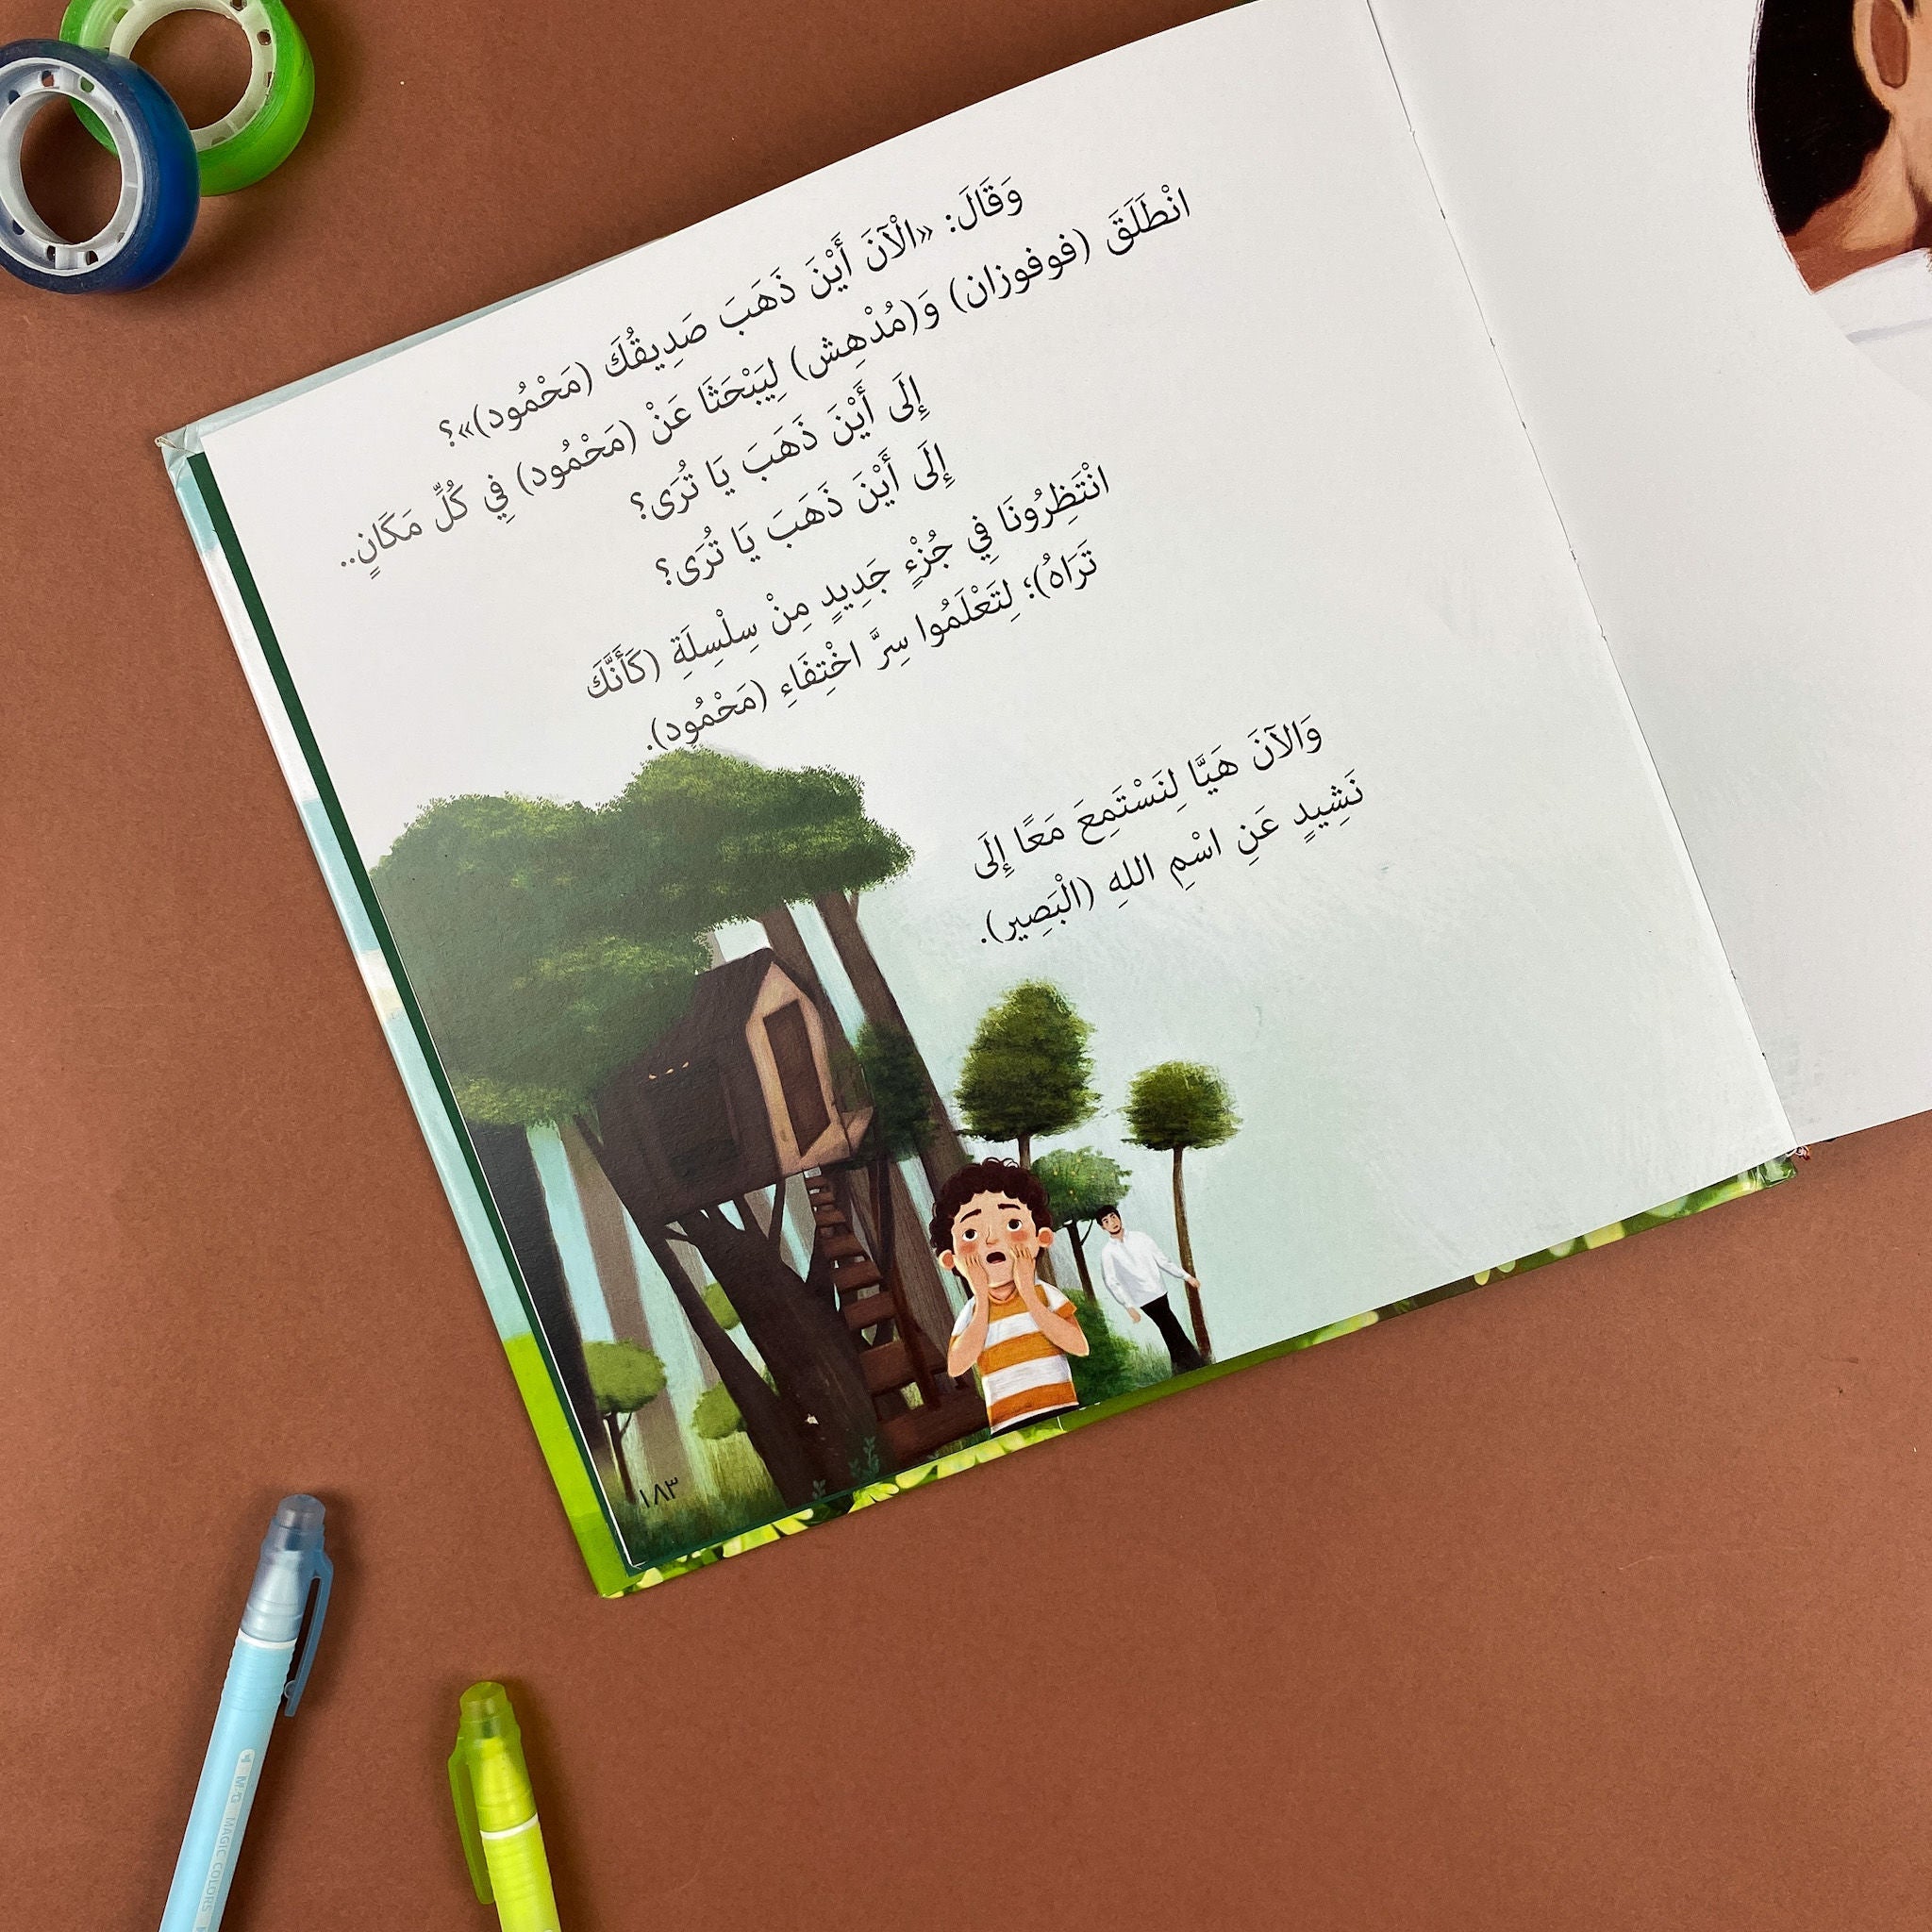 وَقَالَ: «الْآنَ أَيْنَ ذَهَبَ صَدِيقُكَ (مَحْمُود)»؟
انْطَلَقَ (فوفوزان) وَ(مُدْهِش) لِيَبْحَثَا عَنْ (مَحْمُود) فِي كُلِّ مَكَانٍ..
إِلَى أَيْنَ ذَهَبَ يَا تُرَى؟
إِلَى أَيْنَ ذَهَبَ يَا تُرَى؟
انْتَظِرُونَا فِي جُزْءٍ جَدِيدٍ مِنْ سِلْسِلَةِ (كَأَنَّكَ
تَرَاهُ)؛ لِتَعْلَمُوا سِرَّ اخْتِفَاءِ (مَحْمُود).
وَالآنَ هَيَّا لِنَسْتَمِعَ مَعًا إِلَى
نَشِيدٍ عَنِ اسْمِ اللهِ (الْبَصِير).
١٨٣
M&G MAGIC COLORS